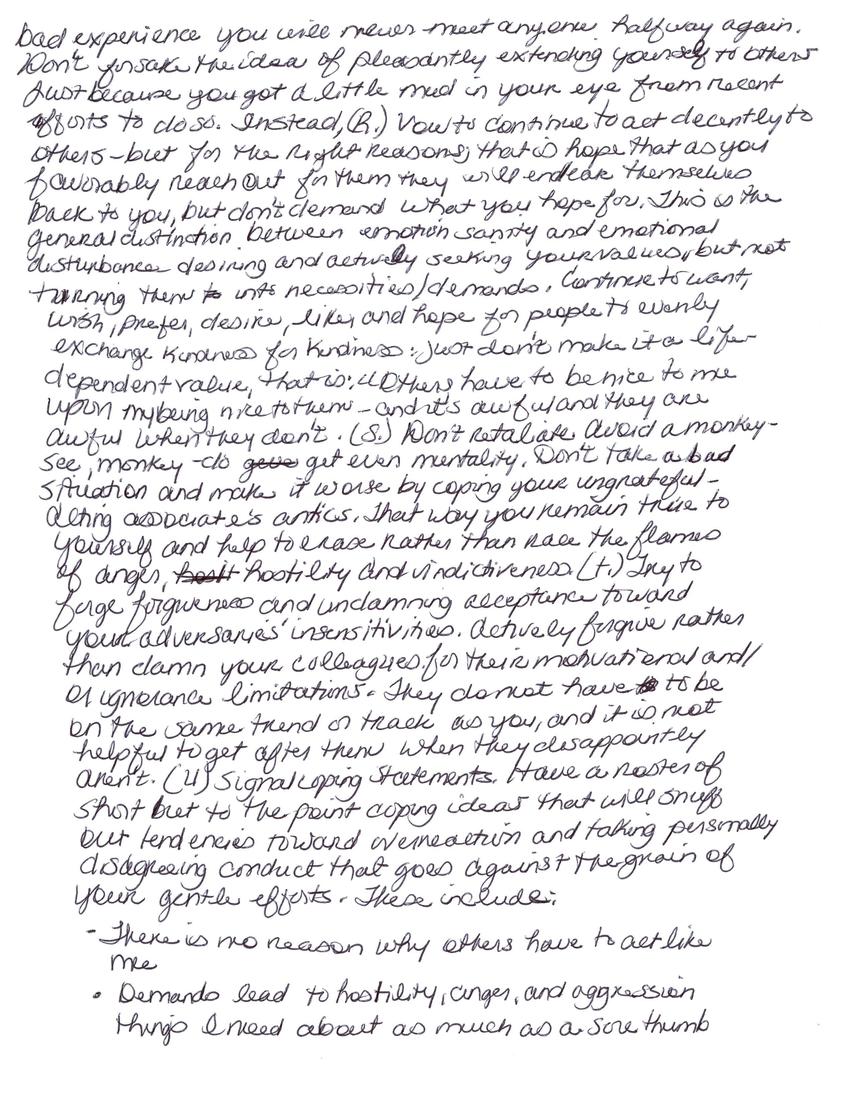 bad experience you will never meet anyone halfway again.
Don't forsake the idea of pleasantly extending yourself to others
just because you got a little mud in your eye from recent
efforts to do so. Instead, (R.) Vow to continue to act decently to
others - but for the right reasons; that is hope that as you
favorably reach out for them they will endear themselves
back to you, but don't demand what you hope for. This is the
general distinction between emotion sanity and emotional
disturbance desiring and actively seeking your values, but not
turning them into necessities/demands. Continue to want,
wish, prefer, desire, like, and hope for people to evenly
exchange kindness for kindness: just don't make it a life-
dependent value, that is: "Others have to be nice to me
upon my being nice to them - and it's awful and they are
awful when they don't. (S.) Don't retaliate. Avoid a monkey-
see, monkey-do get even mentality. Don't take a bad
situation and make it worse by coping your ungrateful-
acting associate's antics. That way you remain true to
yourself and help to erase rather than race the flames
of anger, hostility and vindictiveness. (T.) Try to
forge forgiveness and undamning acceptance toward
your adversaries' insensitivities. Actively forgive rather
than damn your colleagues for their motivational and/
or ignorance limitations. They do not have to be
on the same trend or track as you, and it is not
helpful to get after them when they disappointly
aren't. (U) Signal coping statements. Have a roster of
short but to the point coping ideas that will snuff
out tendencies toward overreaction and taking personally
disagreeing conduct that goes against the grain of
your gentle efforts. These include:
- There is no reason why others have to act like
me
• Demands lead to hostility, anger, and aggression
things I need about as much as a sore thumb